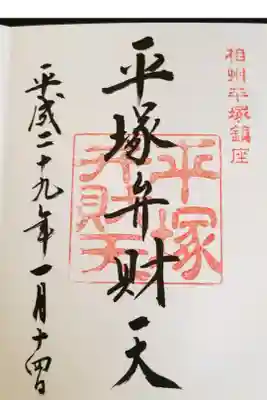 相州平塚鎮座
平塚弁財天
平塚弁財天
平成二十九年一月十四日